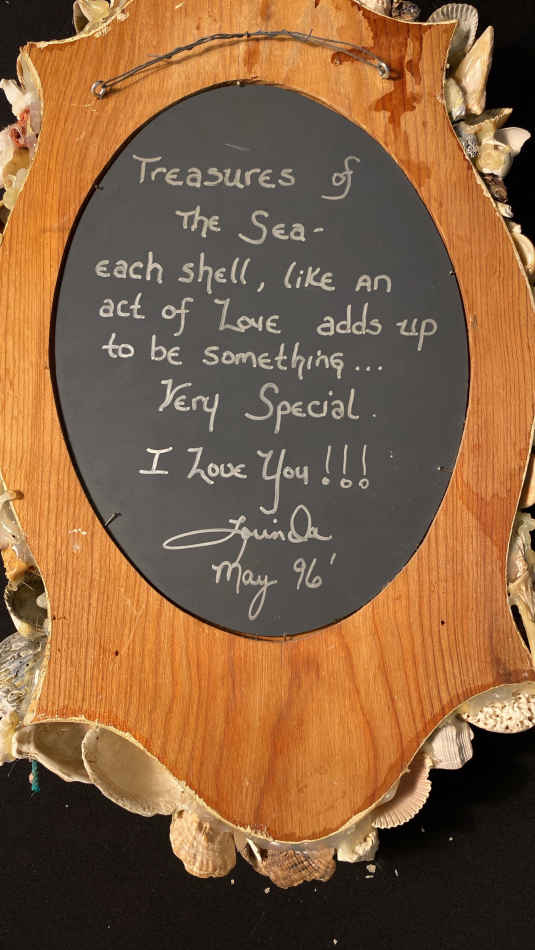 Treasures of
The Sea-
each shell, like an
act of Love adds up
to be something...
Very Special.
I Love You!!!
Lorinda
May 96'